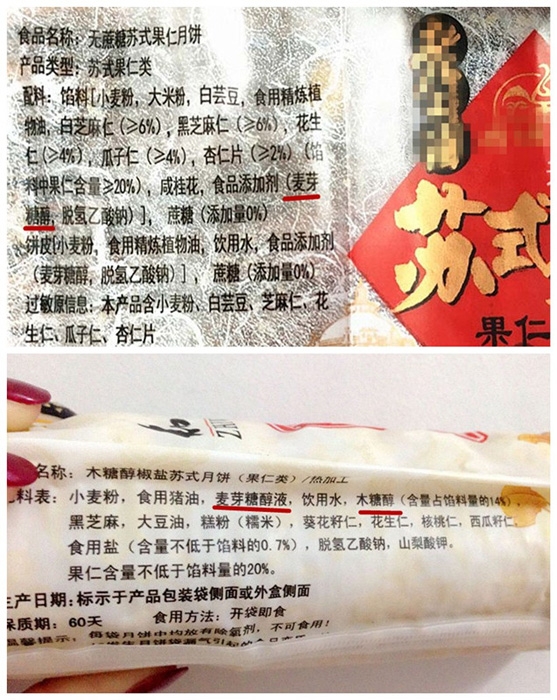 食品名称：无蔗糖苏式果仁月饼
产品类型：苏式果仁类
配料：馅料[小麦粉，大米粉，白芸豆，食用精炼植
物油，白芝麻仁（≥6%），黑芝麻仁（≥6%），花生
仁（≥4%），瓜子仁（≥4%），杏仁片（≥2%）（馅
料中果仁含量≥20%），咸桂花，食品添加剂（麦芽
糖醇，脱氢乙酸钠）]，蔗糖（添加量0%）
饼皮[小麦粉，食用精炼植物油，饮用水，食品添加剂
（麦芽糖醇，脱氢乙酸钠）]，蔗糖（添加量0%）
过敏原信息：本产品含小麦粉、白芸豆、芝麻仁、花
生仁、瓜子仁、杏仁片
苏式
果仁
名称：木糖醇椒盐苏式月饼（果仁类）/热加工
料表：小麦粉，食用猪油，麦芽糖醇液，饮用水，木糖醇（含量占馅料量的14%），
黑芝麻，大豆油，糕粉（糯米），葵花籽仁，花生仁，核桃仁，西瓜籽仁，
食用盐（含量不低于馅料的0.7%），脱氢乙酸钠，山梨酸钾。
果仁含量不低于馅料量的20%。
生产日期：标示于产品包装袋侧面或外盒侧面
保质期：60天 食用方法：开袋即食
温馨提示：每袋月饼中均放有除氧剂，不可食用！